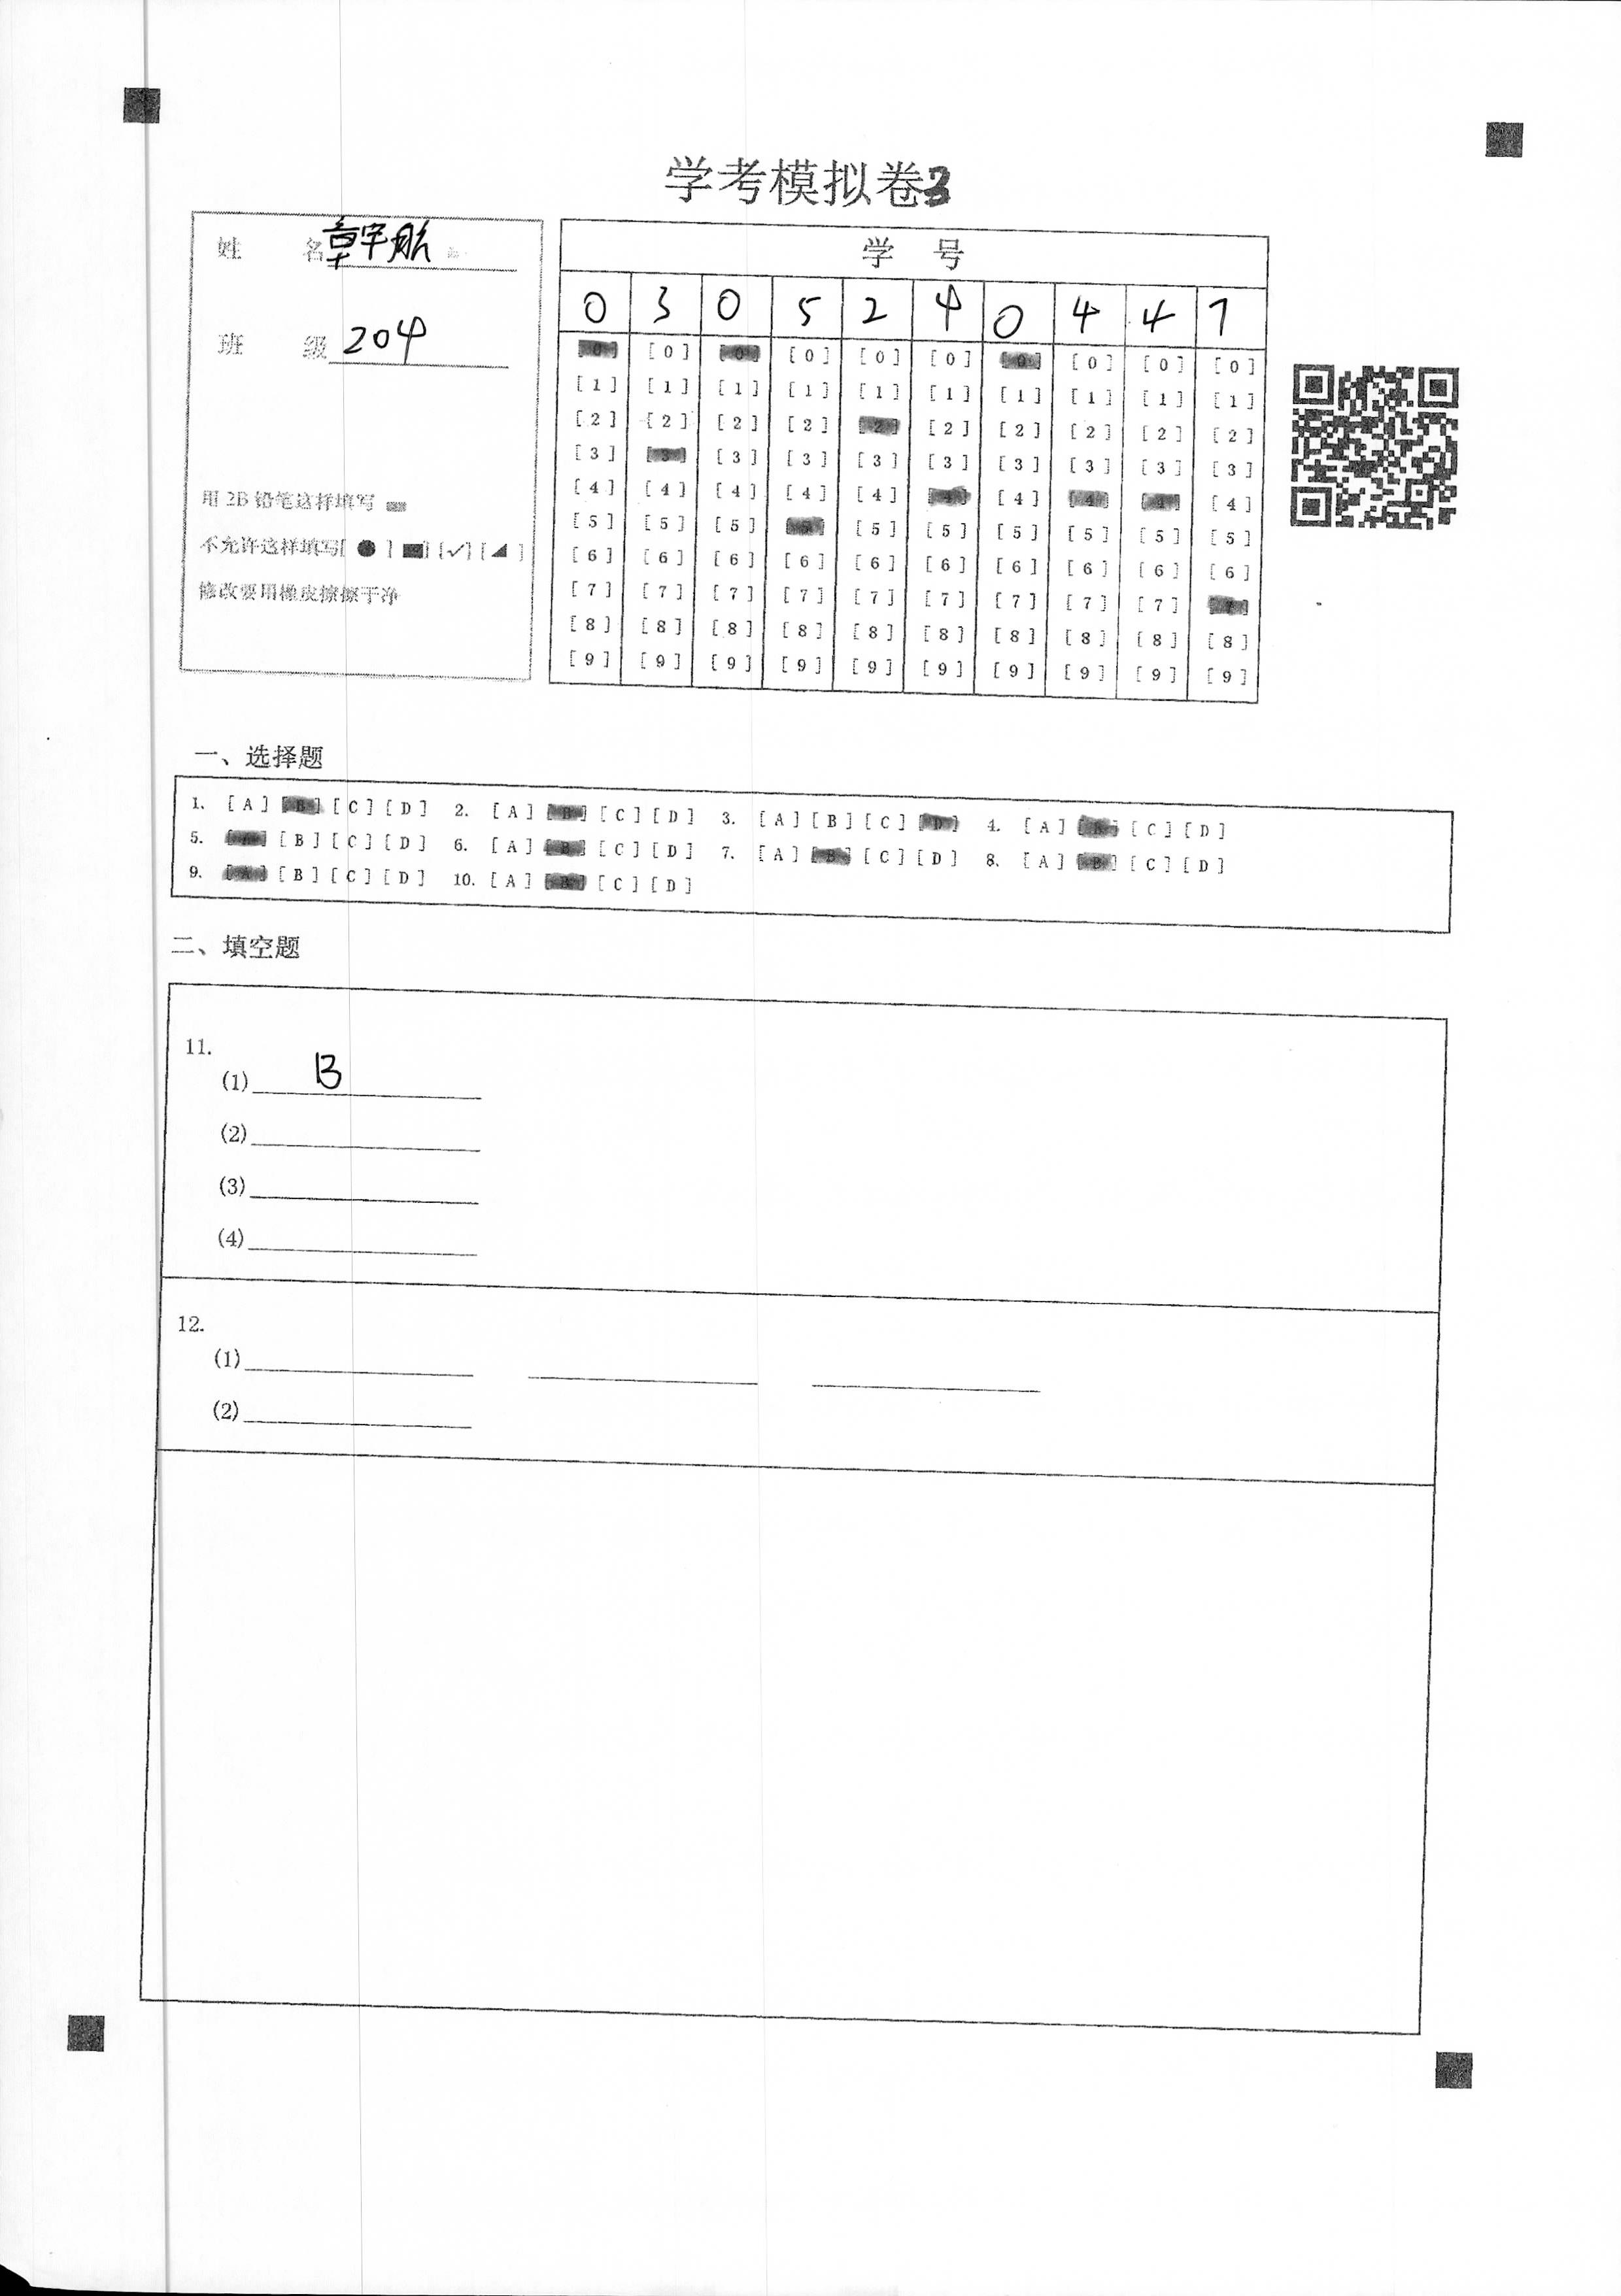 学考模拟卷3
姓 名 章宇航
班 级 204
用 2B 铅笔这样填写
不允许这样填写[ ● ] ■] [✓] [◢ ]
修改要用橡皮擦擦干净
学 号
0 3 0 5 2 4 0 4 4 7
[0] [0] [0] [0] [0] [0] [0] [0] [0] [0]
[1] [1] [1] [1] [1] [1] [1] [1] [1] [1]
[2] [2] [2] [2] [2] [2] [2] [2] [2] [2]
[3] [3] [3] [3] [3] [3] [3] [3] [3] [3]
[4] [4] [4] [4] [4] [4] [4] [4] [4] [4]
[5] [5] [5] [5] [5] [5] [5] [5] [5] [5]
[6] [6] [6] [6] [6] [6] [6] [6] [6] [6]
[7] [7] [7] [7] [7] [7] [7] [7] [7] [7]
[8] [8] [8] [8] [8] [8] [8] [8] [8] [8]
[9] [9] [9] [9] [9] [9] [9] [9] [9] [9]
一、选择题
1. [A] [B] [C] [D] 2. [A] [B] [C] [D] 3. [A] [B] [C] [D] 4. [A] [B] [C] [D]
5. [A] [B] [C] [D] 6. [A] [B] [C] [D] 7. [A] [B] [C] [D] 8. [A] [B] [C] [D]
9. [A] [B] [C] [D] 10. [A] [B] [C] [D]
二、填空题
11.
(1) B
(2)
(3)
(4)
12.
(1)
(2)